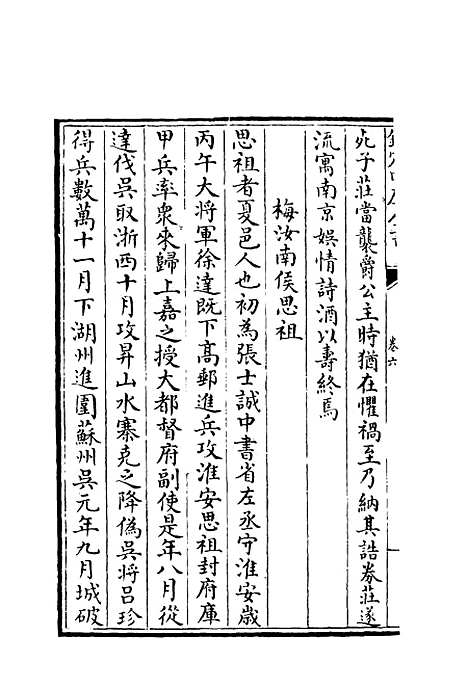 卷六
死子莊當襲爵公主時猶在懼禍至乃納其誥券莊遂
流寓南京娯情詩酒以壽終焉
梅汝南侯思祖
思祖者夏邑人也初為張士誠中書省左丞守淮安歲
丙午大將軍徐達既下高郵進兵攻淮安思祖封府庫
甲兵率衆來歸上嘉之授大都督府副使是年八月從
達伐吳取浙西十月攻昇山水寨克之降偽吳將吕珍
得兵數萬十一月下湖州進圍蘇州吳元年九月城破